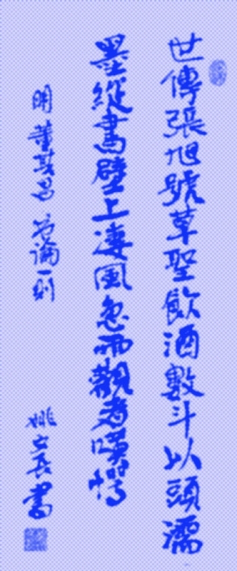 世傳張旭號草聖飲酒數斗以頭濡
墨縱書壁上淒風急雨觀者嘆愕
明董其昌書論一則
姚文長書